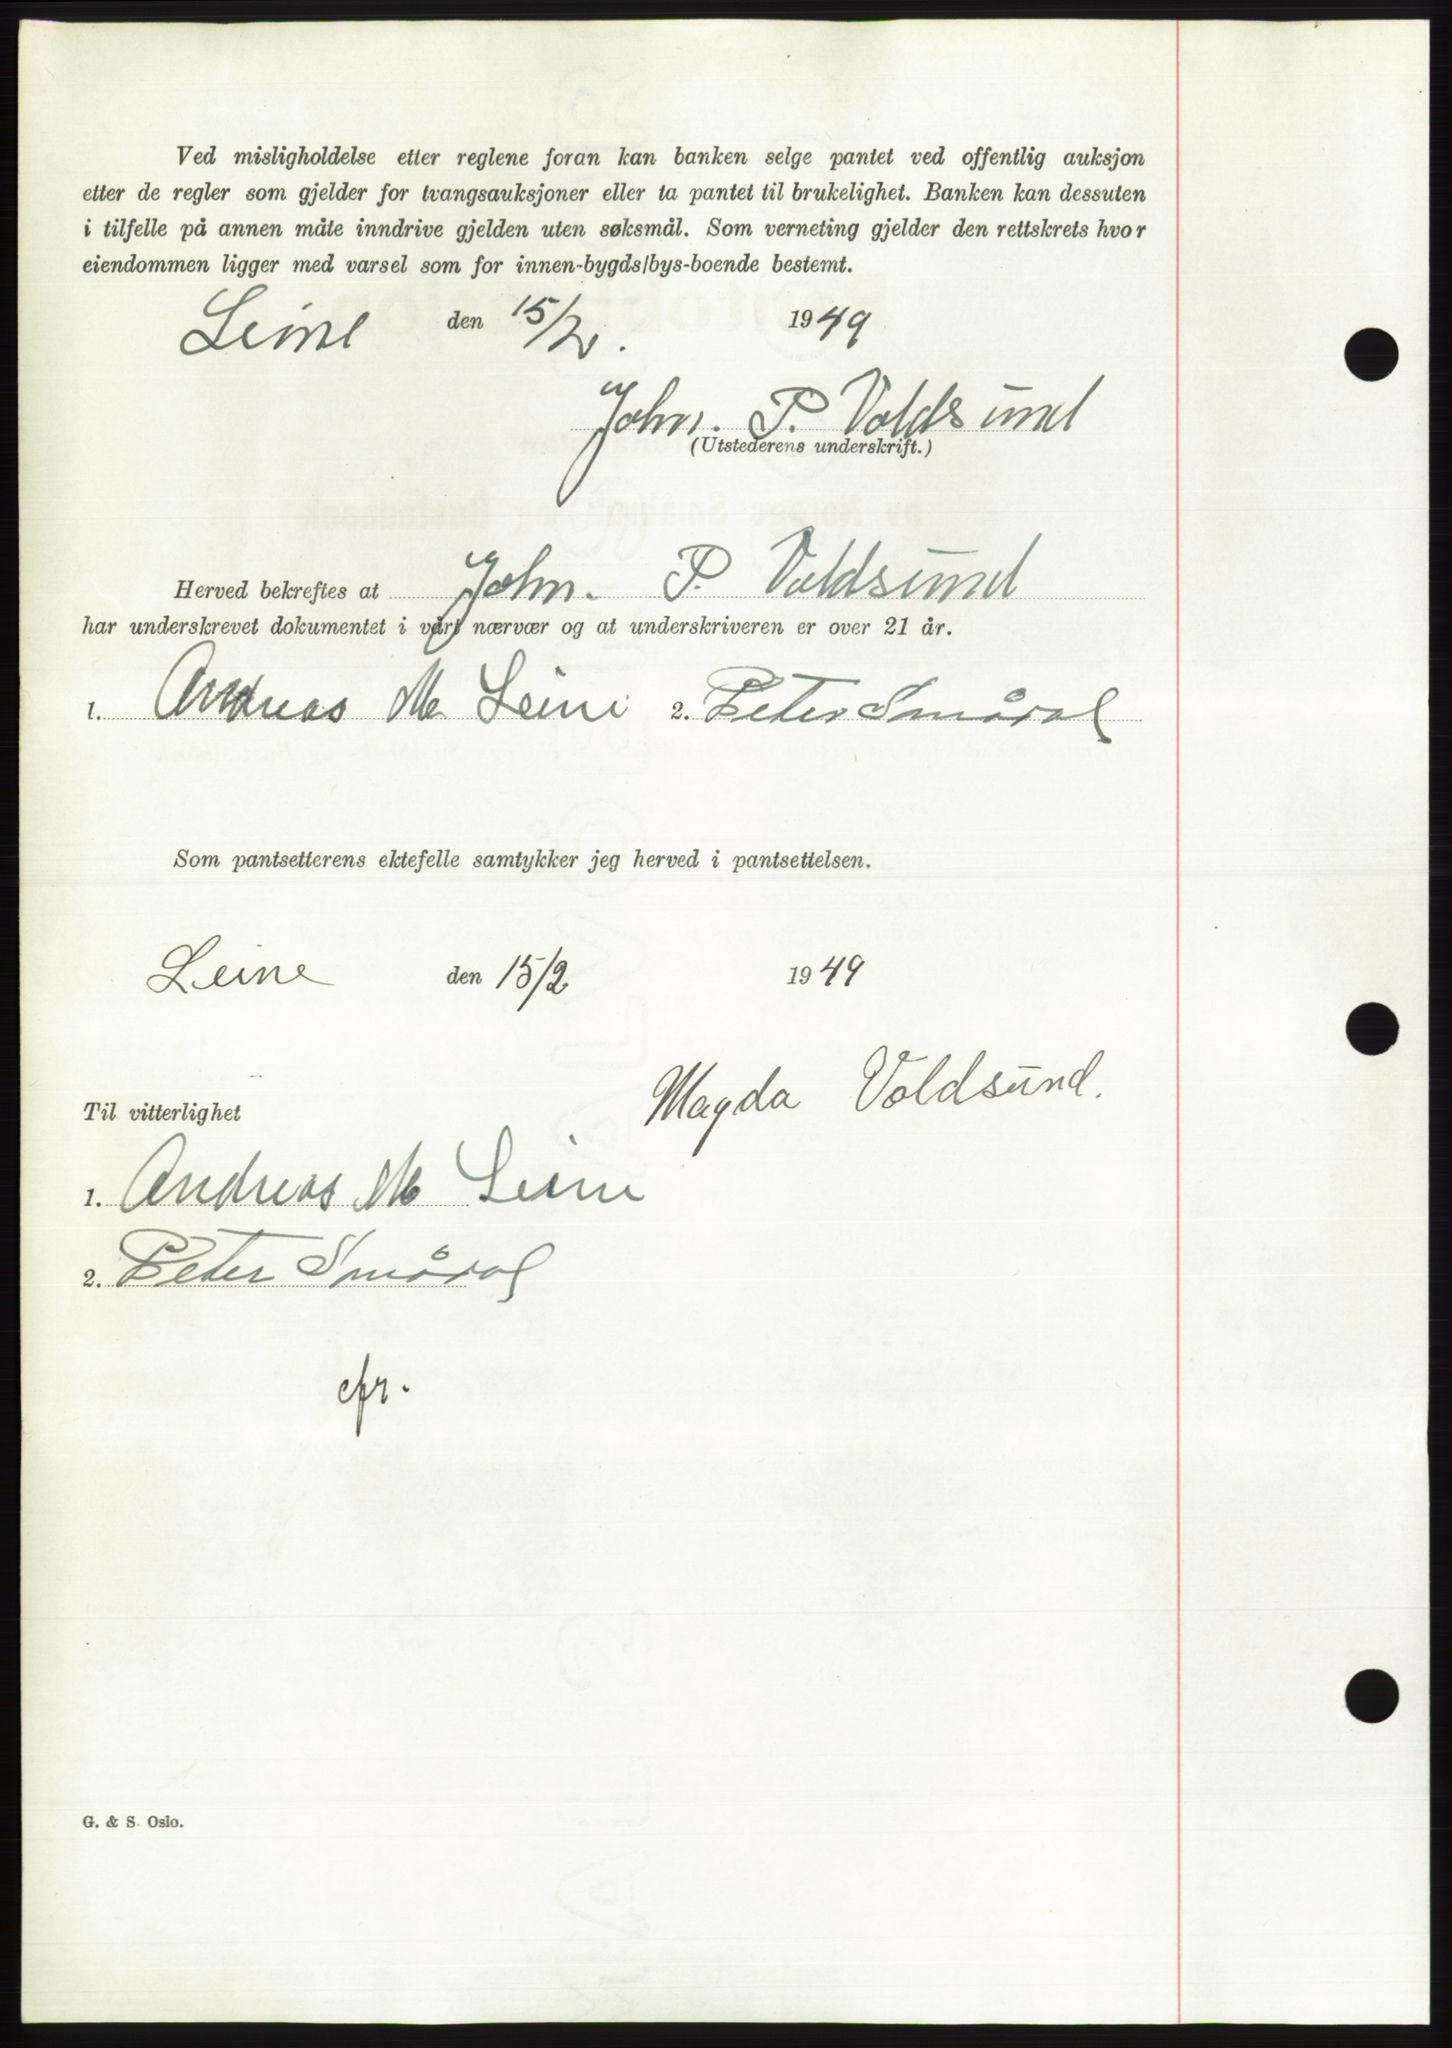 Ved misligholdelse etter reglene foran kan banken selge pantet ved offentlig auksjon
etter de regler som gjelder for tvangsauksjoner eller ta pantet til brukelighet. Banken kan dessuten
i tilfelle på annen måte inndrive gjelden uten søksmål. Som verneting gjelder den rettskrets hvor
eiendommen ligger med varsel som for innen-bygds/bys-boende bestemt.
Leine den 15/2. 1949
John. P. Voldsund
(Utstederens underskrift.)
Herved bekreftes at John. P. Voldsund
har underskrevet dokumentet i vårt nærvær og at underskriveren er over 21 år.
1. Andreas M Leine 2. Peter
Som pantsetterens ektefelle samtykker jeg herved i pantsettelsen.
Leine den 15/2 1949
Magda Voldsund.
Til vitterlighet
1. Andreas M Leine
2. Peter
cfr.
G. & S. Oslo.